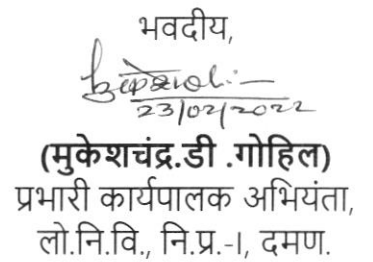 भवदीय,
23/02/2022
(मुकेशचंद्र.डी .गोहिल)
प्रभारी कार्यपालक अभियंता,
लो.नि.वि., नि.प्र.-I, दमण.